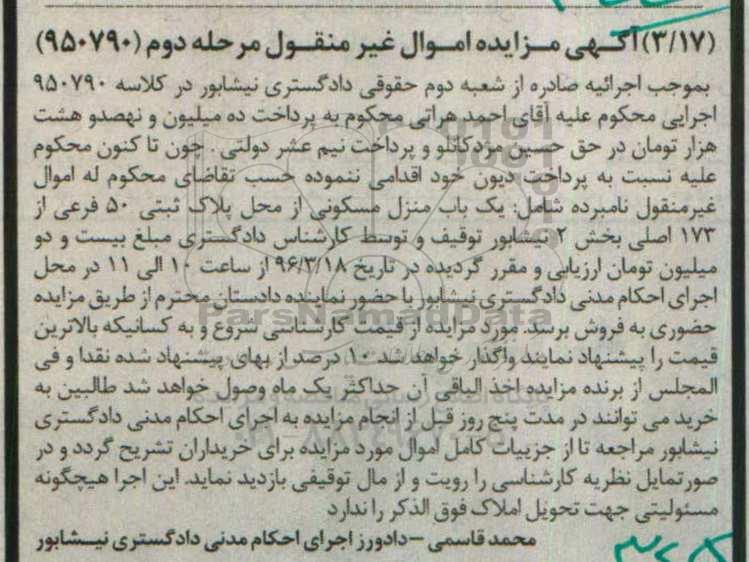 (۳/۱۷) آگهی مزایده اموال غیر منقول مرحله دوم (۹۵۰۷۹۰)
بموجب اجرائیه صادره از شعبه دوم حقوقی دادگستری نیشابور در کلاسه ۹۵۰۷۹۰
اجرایی محکوم علیه آقای احمد هراتی محکوم به پرداخت ده میلیون و نهصدو هشت
هزار تومان در حق حسین مژدکانلو و پرداخت نیم عشر دولتی . چون تا کنون محکوم
علیه نسبت به پرداخت دیون خود اقدامی ننموده حسب تقاضای محکوم له اموال
غیرمنقول نامبرده شامل: یک باب منزل مسکونی از محل پلاک ثبتی ۵۰ فرعی از
۱۷۳ اصلی بخش ۲ نیشابور توقیف و توسط کارشناس دادگستری مبلغ بیست و دو
میلیون تومان ارزیابی و مقرر گردیده در تاریخ ۹۶/۳/۱۸ از ساعت ۱۰ الی ۱۱ در محل
اجرای احکام مدنی دادگستری نیشابور با حضور نماینده دادستان محترم از طریق مزایده
حضوری به فروش برسد. مورد مزایده از قیمت کارشناسی شروع و به کسانیکه بالاترین
قیمت را پیشنهاد نمایند واگذار خواهد شد ۱۰ درصد از بهای پیشنهاد شده نقدا و فی
المجلس از برنده مزایده اخذ الباقی آن حداکثر یک ماه وصول خواهد شد طالبین به
خرید می توانند در مدت پنج روز قبل از انجام مزایده به اجرای احکام مدنی دادگستری
نیشابور مراجعه تا از جزییات کامل اموال مورد مزایده برای خریداران تشریح گردد و در
صورتمایل نظریه کارشناسی را رویت و از مال توقیفی بازدید نماید. این اجرا هیچگونه
مسئولیتی جهت تحویل املاک فوق الذکر را ندارد
محمد قاسمی – دادورز اجرای احکام مدنی دادگستری نیشابور
ParsNamadData